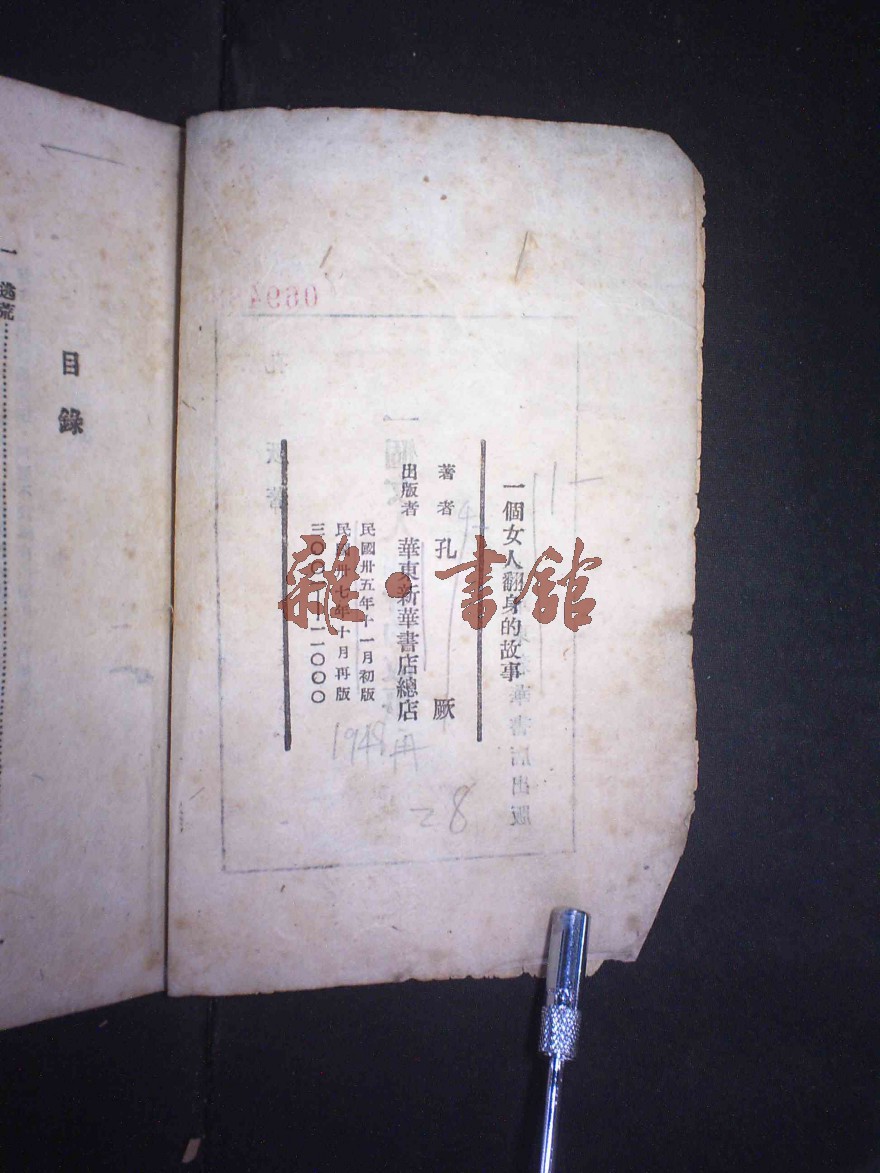 一個女人翻身的故事
著者 孔厥
出版者 華東新華書店總店
民國卅五年十一月初版
民國卅七年十月再版
目錄
一 逃荒
雜·書館
1948
28